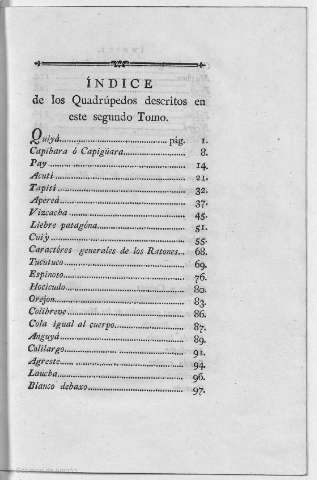 ÍNDICE
de los Quadrúpedos descritos en
este segundo Tomo.
Quiyá............................ pág. 1.
Capibara ó Capigüara............ 8.
Pay............................ 14.
Acuti............................ 21.
Tapití............................ 32.
Apereá............................ 37.
Vizcacha............................ 45.
Liebre patagóna............................ 51.
Cuiÿ............................ 55.
Caractéres generales de los Ratones... 68.
Tucutuco............................ 69.
Espinoso............................ 76.
Hocicudo............................ 80.
Orejon............................ 83.
Colibreve............................ 86.
Cola igual al cuerpo............................ 87.
Anguyá............................ 89.
Colilargo............................ 91.
Agreste............................ 94.
Laucha............................ 96.
Blanco debaxo............................ 97.